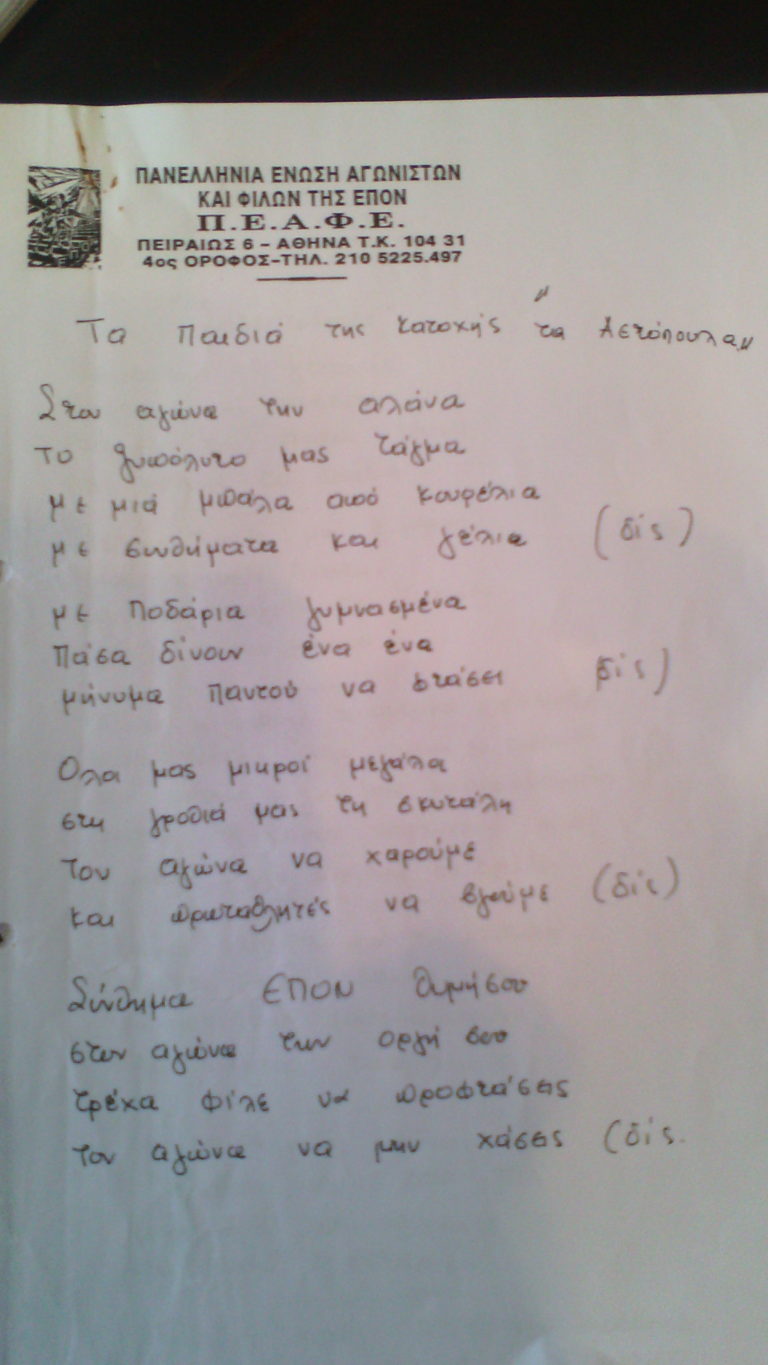 ΠΑΝΕΛΛΗΝΙΑ ΕΝΩΣΗ ΑΓΩΝΙΣΤΩΝ
ΚΑΙ ΦΙΛΩΝ ΤΗΣ ΕΠΟΝ
Π.Ε.Α.Φ.Ε.
ΠΕΙΡΑΙΩΣ 6 – ΑΘΗΝΑ Τ.Κ. 104 31
4ος ΟΡΟΦΟΣ–ΤΗΛ. 210 5225.497
Τα Παιδιά της Κατοχής "τα Αετόπουλα"
Στου αγώνα την αλάνα
Το ξυπόλυτο μας τάγμα
με μιά μπάλα από κουρέλια
με συνθήματα και γέλια (δίς)
με Ποδάρια γυμνασμένα
Πάσα δίνουν ένα ένα
μήνυμα Παντού να φτάσει δίς)
Ολα μας μικροί μεγάλα
στη γροθιά μας τη σκυτάλη
Τον αγώνα να χαρούμε
και πρωταθλητές να βγούμε (δίς)
Σύνθημα ΕΠΟΝ θυμήσου
στον αγώνα την οργή σου
τρέχα φίλε να προφτάσεις
τον αγώνα να μην χάσεις (δίς.